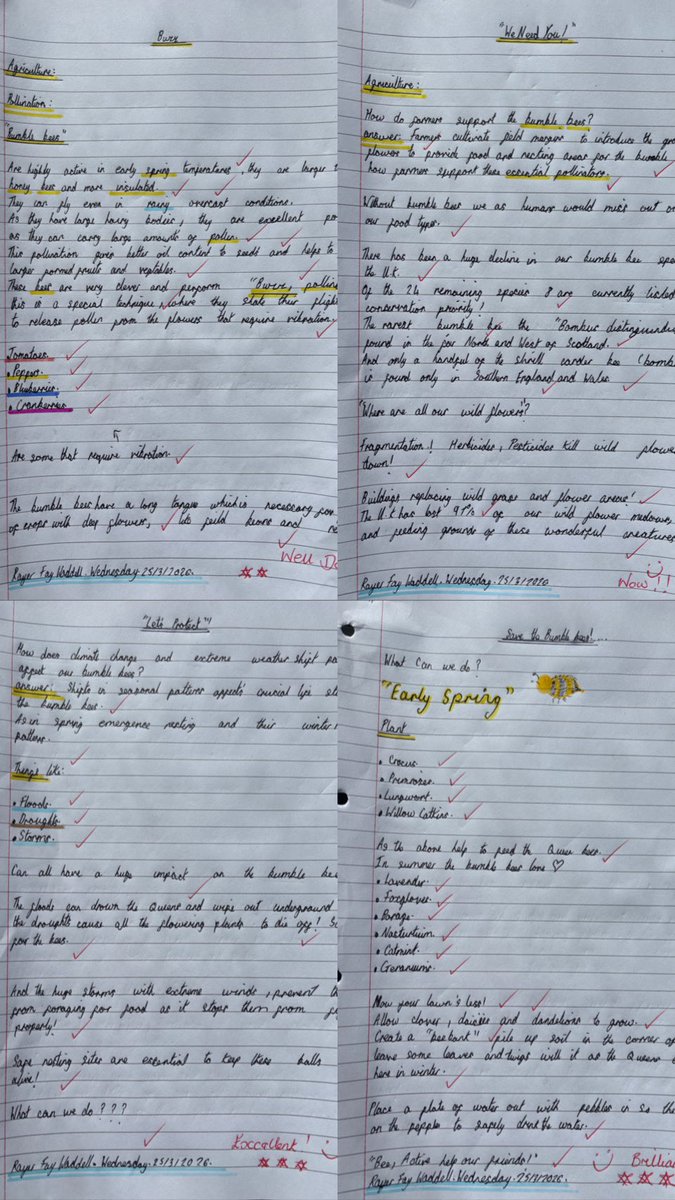 Buzz
Agriculture:
Pollination:
"Bumble bees"
Are highly active in early spring temperatures, they are larger
honey bees and more insulated.
They can fly even in rainy overcast conditions.
As they have large hairy bodies, they are excellent
as they can carry large amounts of pollen.
This pollination gives better oil content to seeds and helps to
larger formed fruits and vegetables.
These bees are very clever and perform "Buzz,
this is a special technique where they shake their flight
to release pollen from the flowers that require vibration.
Tomatoes.
• Peppers.
• Blueberries.
• Cranberries.
Are some that require vibration.
The bumble bees have a long tongue which is necessary for
of crops with deep flowers, lets field beans and
Well
Rayer Fay Waddell. Wednesday. 25/3/2026.
"We Need You!"
Agriculture:
How do farmers support the bumble bees?
answer: Farmers cultivate field margins to introduce the
flowers to provide food and nesting areas for the bumble
how farmers support these essential pollinators.
Without bumble bees we as humans would miss out on
our food types.
There has been a huge decline in our bumble bee
the U.K.
Of the 24 remaining species 8 are currently listed
conservation priority!
The rarest bumble bee the "Bombus
found in the far North and West of Scotland.
And only a handful of the shrill carder bee
is found only in Southern England and Wales
"Where are all our wild flowers"?
Fragmentation! Herbicides, Pesticides kill wild
down!
Buildings replacing wild grass and flower areas!
The U.K has lost 97% of our wild flower medows
and feeding grounds of these wonderful creatures
Rayer Fay Waddell. Wednesday. 25/3/2026
Wow!!
"Let's Protect"!
How does climate change and extreme weather shift
affect our bumble bees?
answer: Shifts in seasonal patterns affects crucial life
the bumble bees.
As in spring emergence nesting and their winter
pattern.
Things like:
• Floods.
• Droughts.
• Storms.
Can all have a huge impact on the bumble
The floods can drown the Queens and wipe out underground
the droughts cause all the flowering plants to die off!
for the bees.
And the huge storms with extreme winds, prevent
from foraging for food as it stops them from
properly!
Safe nesting sites are essential to keep these balls
alive!
What can we do???
Exccellent!
Rayer Fay Waddell. Wednesday. 25/3/2026.
Save the Bumble bees!...
What Can we do?
"Early Spring"
Plant
• Crocus.
• Primroses.
• Lungwort.
• Willow Catkins.
As the above help to feed the Queen bees.
In summer the bumble bees love ♡
• Lavender.
• Foxgloves.
• Borage.
• Nasturtium.
• Catmint.
• Geraniums.
Mow your lawn's less!
Allow clover, daisies and dandelions to grow.
Create a pile up soil in the corner
leave some leaves and twigs with it as the Queens
here in winter.
Place a plate of water out with pebbles in so
on the pepple to safely drink the water.
"Bee, Active help our friends!"
Rayer Fay Waddell. Wednesday. 25/3/2026.